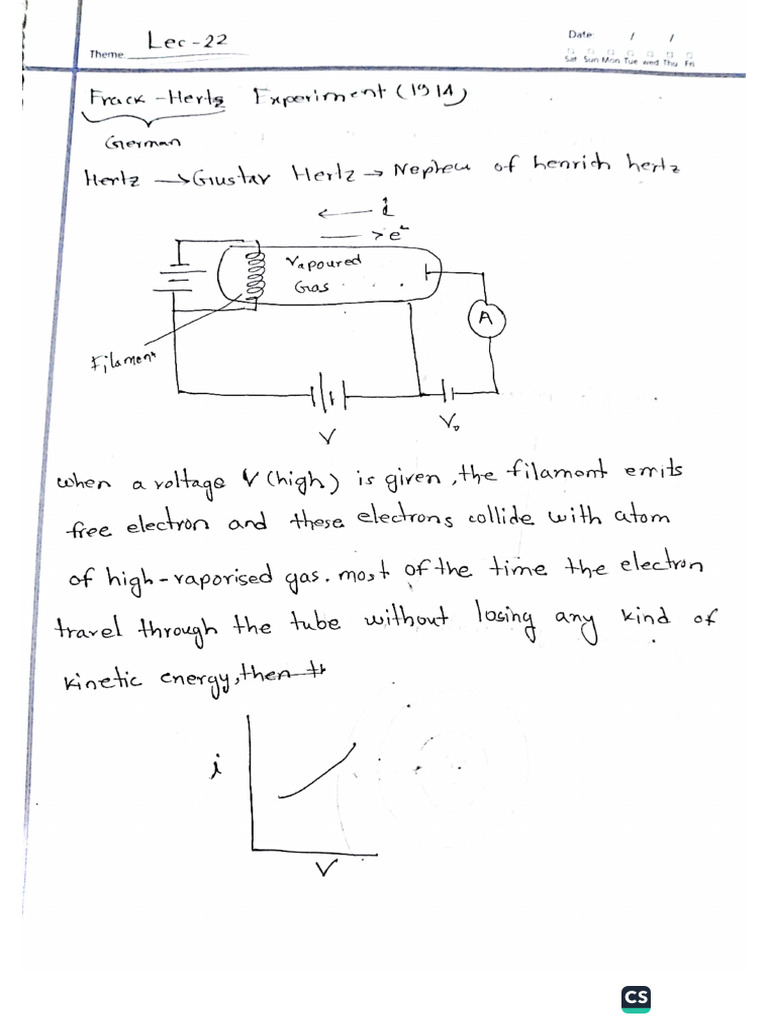 Lec-22
Theme
Date / /
Sat Sun Mon Tue wed Thu Fri
Frack-Hertz Experiment (1914)
German
Hertz → Gustav Hertz → Nephew of henrich hertz
← i
→ e⁻
Vapoured
Gas
A
Filament
V
V₀
when a voltage V (high) is given, the filament emits
free electron and these electrons collide with atom
of high-vaporised gas. most of the time the electron
travel through the tube without losing any kind of
kinetic energy, then
i
V
CS